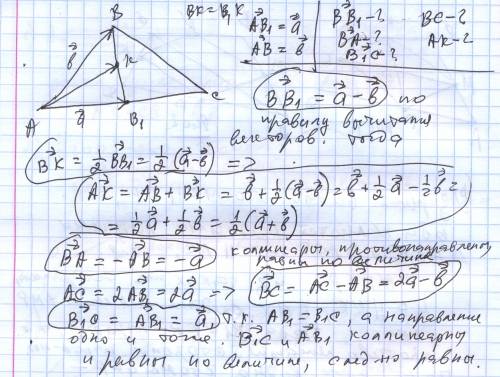 BK = B₁K
AB₁ = a⃗
AB⃗ = b⃗
BB₁⃗ - ? BC - ?
BA⃗ - ? AK - ?
B₁C⃗ - ?
B
b⃗
K
A
a⃗
B₁
C
BB₁⃗ = a⃗ - b⃗ по
правилу вычитания
векторов. тогда
BK⃗ = 1/2 BB₁⃗ = 1/2 (a⃗ - b⃗) =>
AK⃗ = AB⃗ + BK⃗ = b⃗ + 1/2 (a⃗ - b⃗) = b⃗ + 1/2 a⃗ - 1/2 b⃗ =
= 1/2 a⃗ + 1/2 b⃗ = 1/2 (a⃗ + b⃗)
BA⃗ = -AB⃗ = -a⃗ коллинеары, противонаправлены
равны по величине
AC⃗ = 2AB₁⃗ = 2a⃗ => BC⃗ = AC⃗ - AB⃗ = 2a⃗ - b⃗
B₁C⃗ = AB₁⃗ = a⃗, т.к. AB₁ = B₁C, а направление
одно и тоже. B₁C⃗ и AB₁⃗ коллинеарны
и равны по величине, след-но равны.